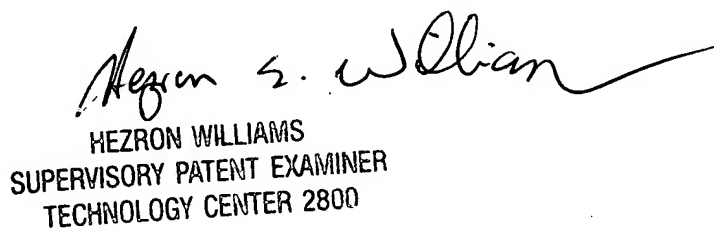 Hezron E. Williams
HEZRON WILLIAMS
SUPERVISORY PATENT EXAMINER
TECHNOLOGY CENTER 2800